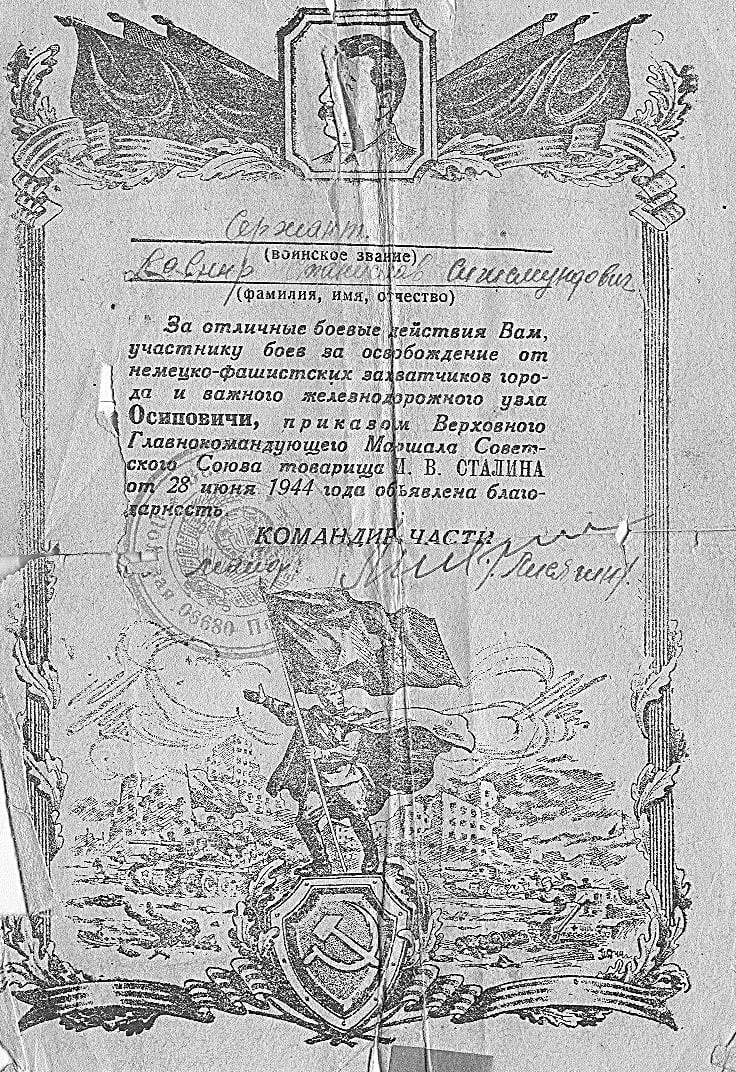 Сержант
(воинское звание)
Станислав Сигизмундович
(фамилия, имя, отчество)
За отличные боевые действия Вам,
участнику боев за освобождение от
немецко-фашистских захватчиков горо-
да и важного железнодорожного узла
Осиповичи, приказом Верховного
Главнокомандующего Маршала Совет-
ского Союза товарища И. В. СТАЛИНА
от 28 июня 1944 года объявлена благо-
дарность.
КОМАНДИР ЧАСТИ
майор
05680